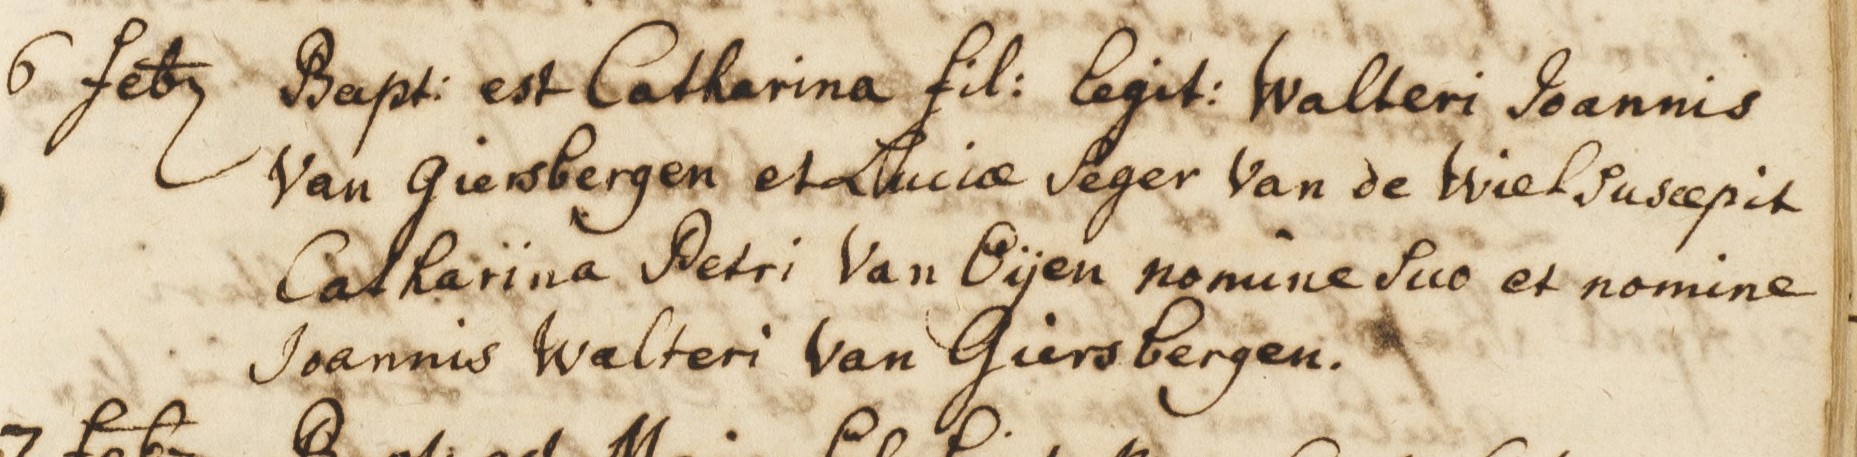 6 feb Bapt: est Catharina fil: legit: Walteri Joannis
Van Giersbergen et Luciæ Seger Van de Wiel Suscepit
Catharina Petri Van Oijen nomine Suo et nomine
Joannis Walteri Van Giersbergen.
7 feb Bapt: est